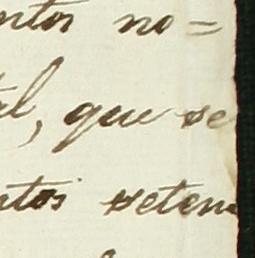 ntos no=
tal, que se
ntos seten